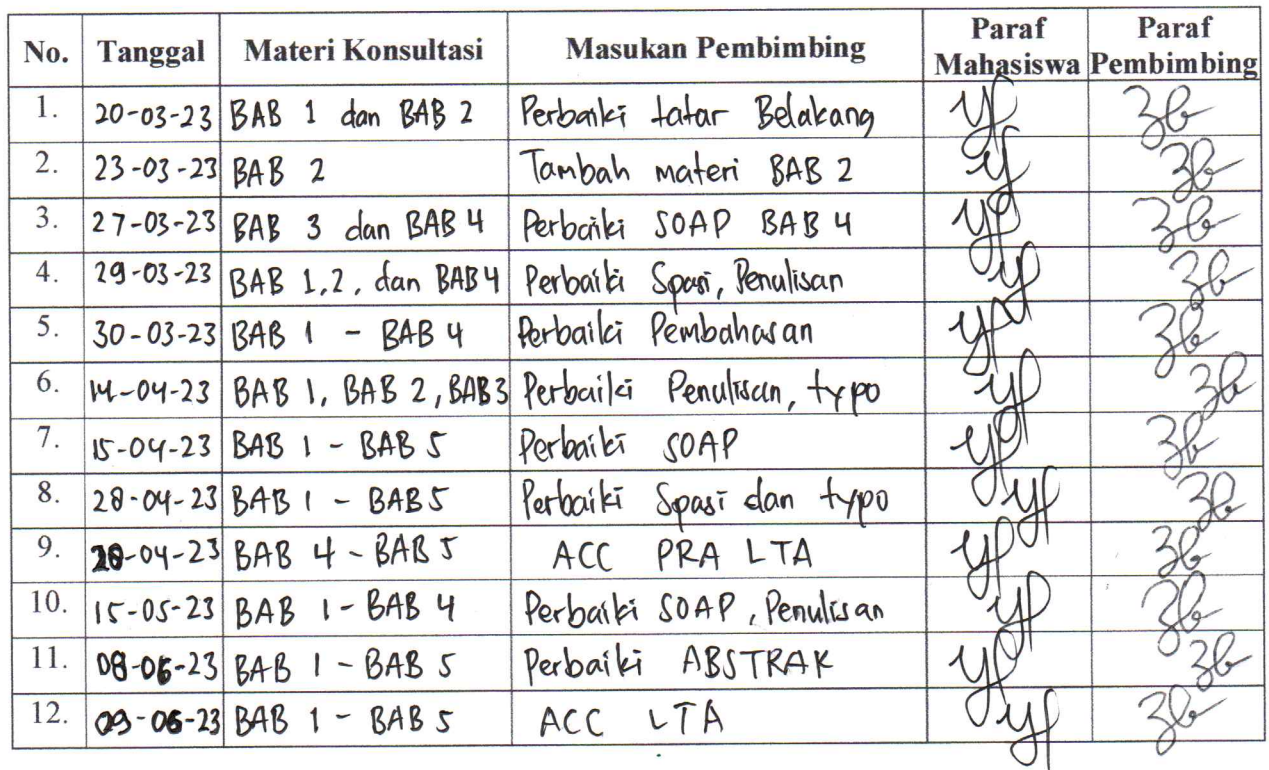 No. Tanggal Materi Konsultasi Masukan Pembimbing Paraf Mahasiswa Paraf Pembimbing
1. 20-03-23 BAB 1 dan BAB 2 Perbaiki tatar Belakang
2. 23-03-23 BAB 2 Tambah materi BAB 2
3. 27-03-23 BAB 3 dan BAB 4 Perbaiki SOAP BAB 4
4. 29-03-23 BAB 1,2, dan BAB 4 Perbaiki Spasi, Penulisan
5. 30-03-23 BAB 1 - BAB 4 Perbaiki Pembahasan
6. 14-04-23 BAB 1, BAB 2, BAB 3 Perbaiki Penulisan, typo
7. 15-04-23 BAB 1 - BAB 5 Perbaiki SOAP
8. 28-04-23 BAB 1 - BAB 5 Perbaiki Spasi dan typo
9. BAB 4 - BAB 5 ACC PRA LTA
10. 15-05-23 BAB 1 - BAB 4 Perbaiki SOAP, Penulisan
11. 08-06-23 BAB 1 - BAB 5 Perbaiki ABSTRAK
12. 09-06-23 BAB 1 - BAB 5 ACC LTA